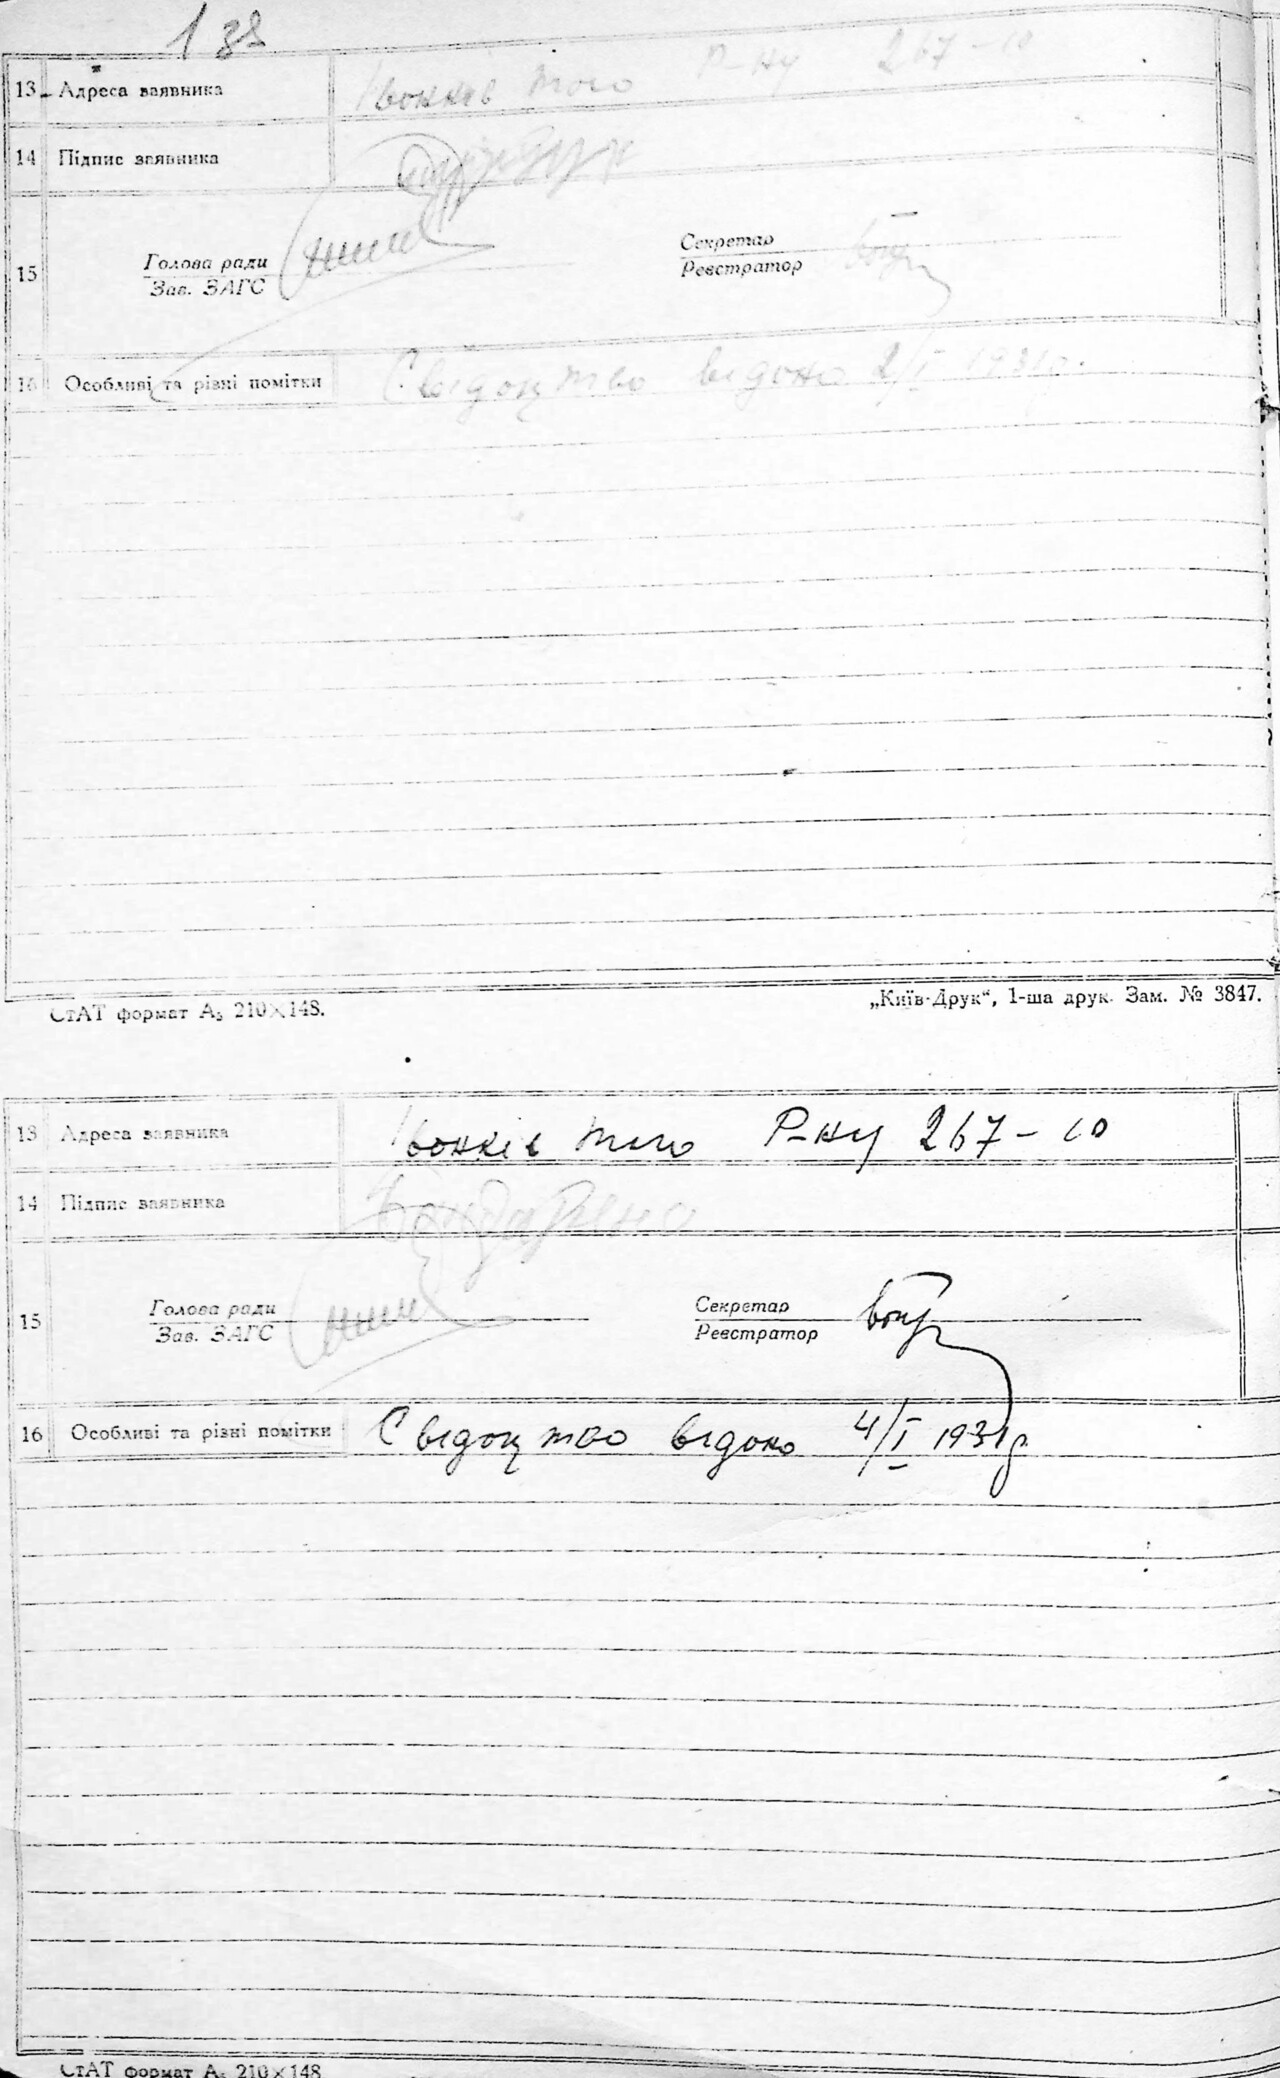 138
13 Адреса заявника Івонків того Р-ну 267-10
14 Підпис заявника
15 Голова ради Секретар
Зав. ЗАГС Реєстратор
16 Особливі та різні помітки Свідоцтво відоно 2/I 1931р.
СтАТ формат А5 210×148.
„Київ-Друк“, 1-ша друк. Зам. № 3847.
13 Адреса заявника Івонків того Р-ну 267-10
14 Підпис заявника
15 Голова ради Секретар
Зав. ЗАГС Реєстратор
16 Особливі та різні помітки Свідоцтво відоно 4/I 1931р.
СтАТ формат А5 210×148